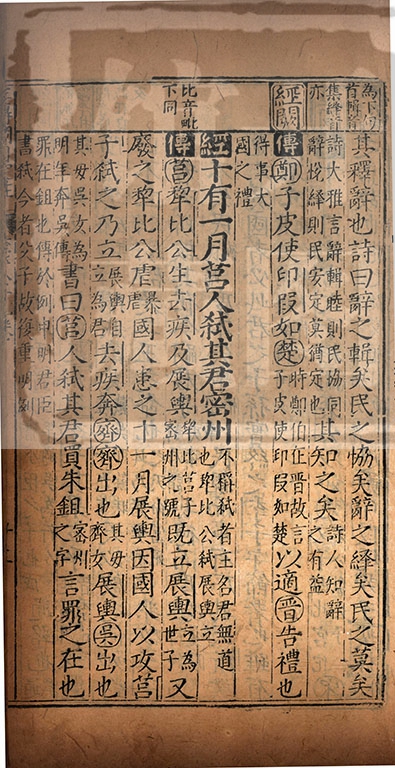 為下句
首輯音
集繹音
亦
經闕
比音毗
下同
其釋辭也詩曰辭之輯矣民之恊矣辭之繹矣民之莫矣
詩大雅言辭輯睦則民協同
辭悅繹則民安定莫猶定也
其知之矣
詩人知辭
之有益
傳鄭子皮使印段如楚
時鄭伯在晉故言
子皮使印段如楚
以適晉告禮也
得事大
國之禮
經十有一月莒人弒其君密州
不稱弒者主名君無道
也犂比公弒展輿立
傳莒犂比公生去疾及展輿
犂比莒子
密州之號
既立展輿
立為
世子
又
廢之犂比公虐
暴
虐
國人患之十一月展輿因國人以攻莒
子弒之乃立
展輿自
立為君
去疾奔齊齊出也
其母
齊女
展輿吳出也
其母吳女為
明年奔吳傳
書曰莒人弒其君買朱鉏
密州
之字
言罪之在也
罪在鉏也傳於例中明君臣
書弒今者父子故復重明例